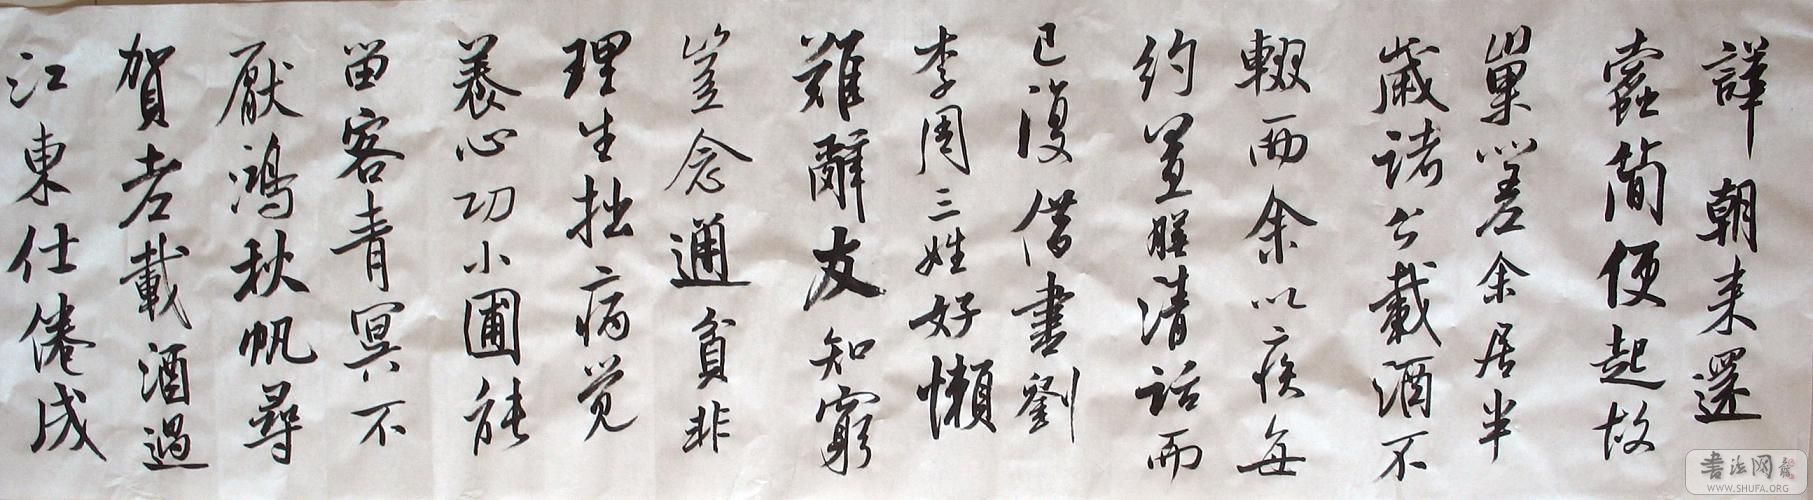 譁朝来還
蠹簡便起故
巢嗟余居半
歲諸公載酒不
輟而余以疾每
約置膳清話而
已復借書劉
李周三姓好懶
難辭友知窮
豈念通貧非
理生拙病覚
養心功小圃能
留客青冥不
厭鴻秋帆尋
賀老載酒過
江東仕倦成
書法网
WWW.SHUFA.ORG